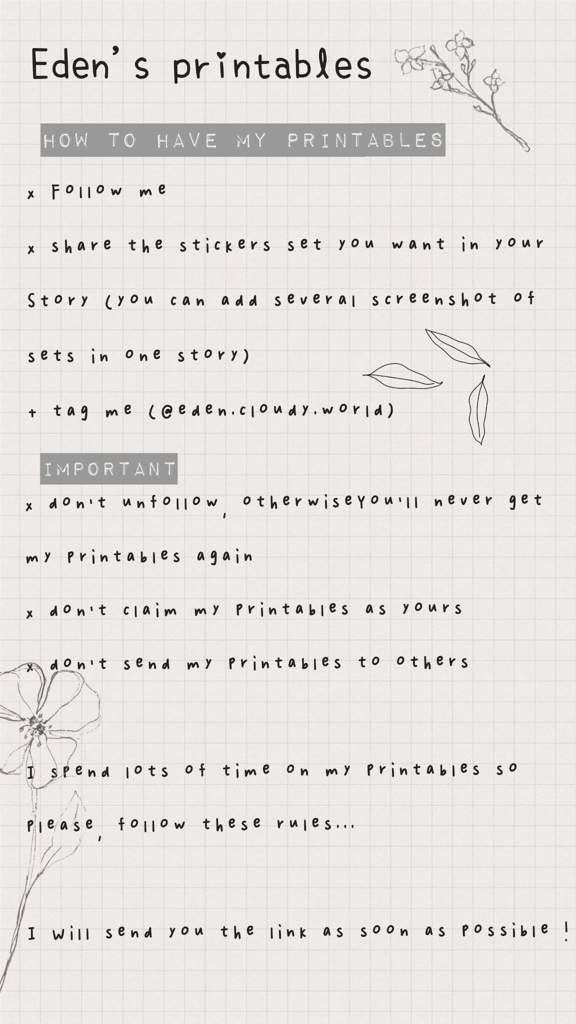 Eden's printables
HOW TO HAVE MY PRINTABLES
x Follow me
x share the stickers set you want in your
Story (you can add several screenshot of
sets in one story)
+ tag me (@eden.cloudy.world)
IMPORTANT
x don't unfollow, otherwiseYou'll never get
my printables again
x don't claim my printables as yours
x don't send my printables to others
I spend lots of time on my printables so
please, follow these rules...
I will send you the link as soon as possible !